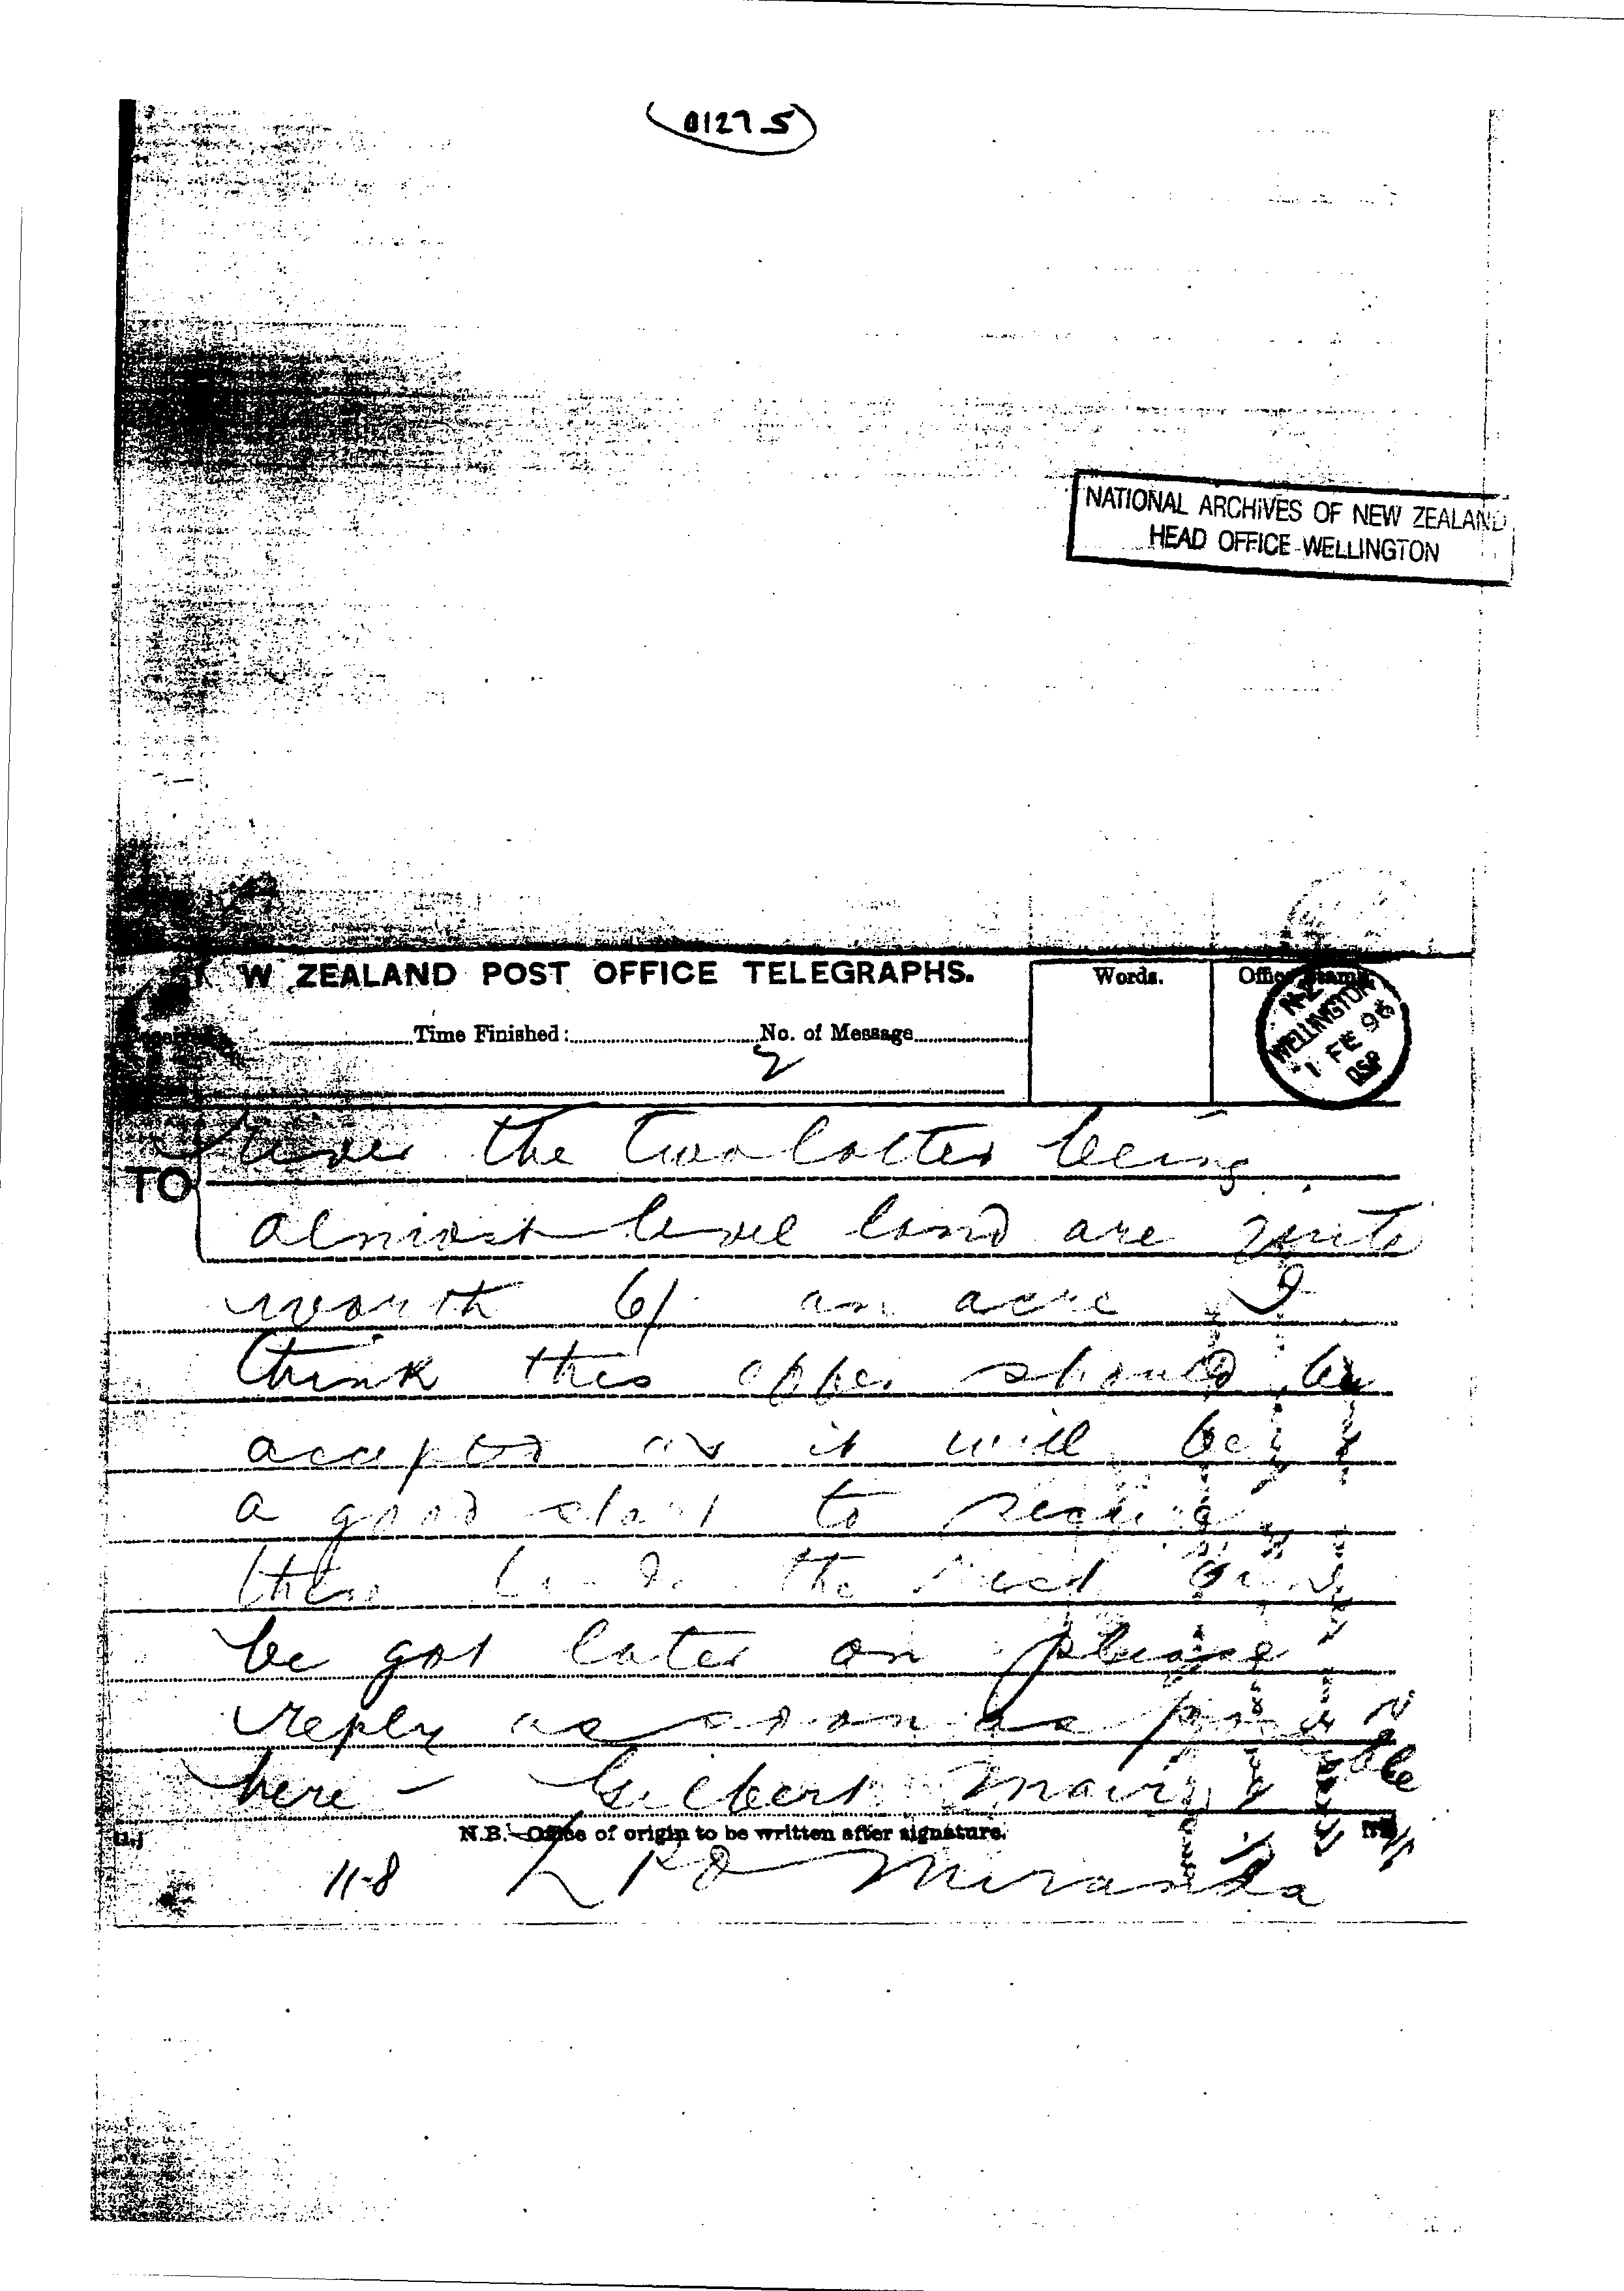 01275
NATIONAL ARCHIVES OF NEW ZEALAND
HEAD OFFICE WELLINGTON
W ZEALAND POST OFFICE TELEGRAPHS.
Words.
Office Stamp.
N.Z
WELLINGTON
1 FE 96
Time Finished: No. of Message
2
the two latter being
TO
almost level land are quite
worth 6/ an acre I
think this offer should be
accepted as it will be
a good start to
these the
be got later on please
reply as soon as possible
here - Gilbert Mair
N.B.—Office of origin to be written after signature.
11-8 L P O Miranda